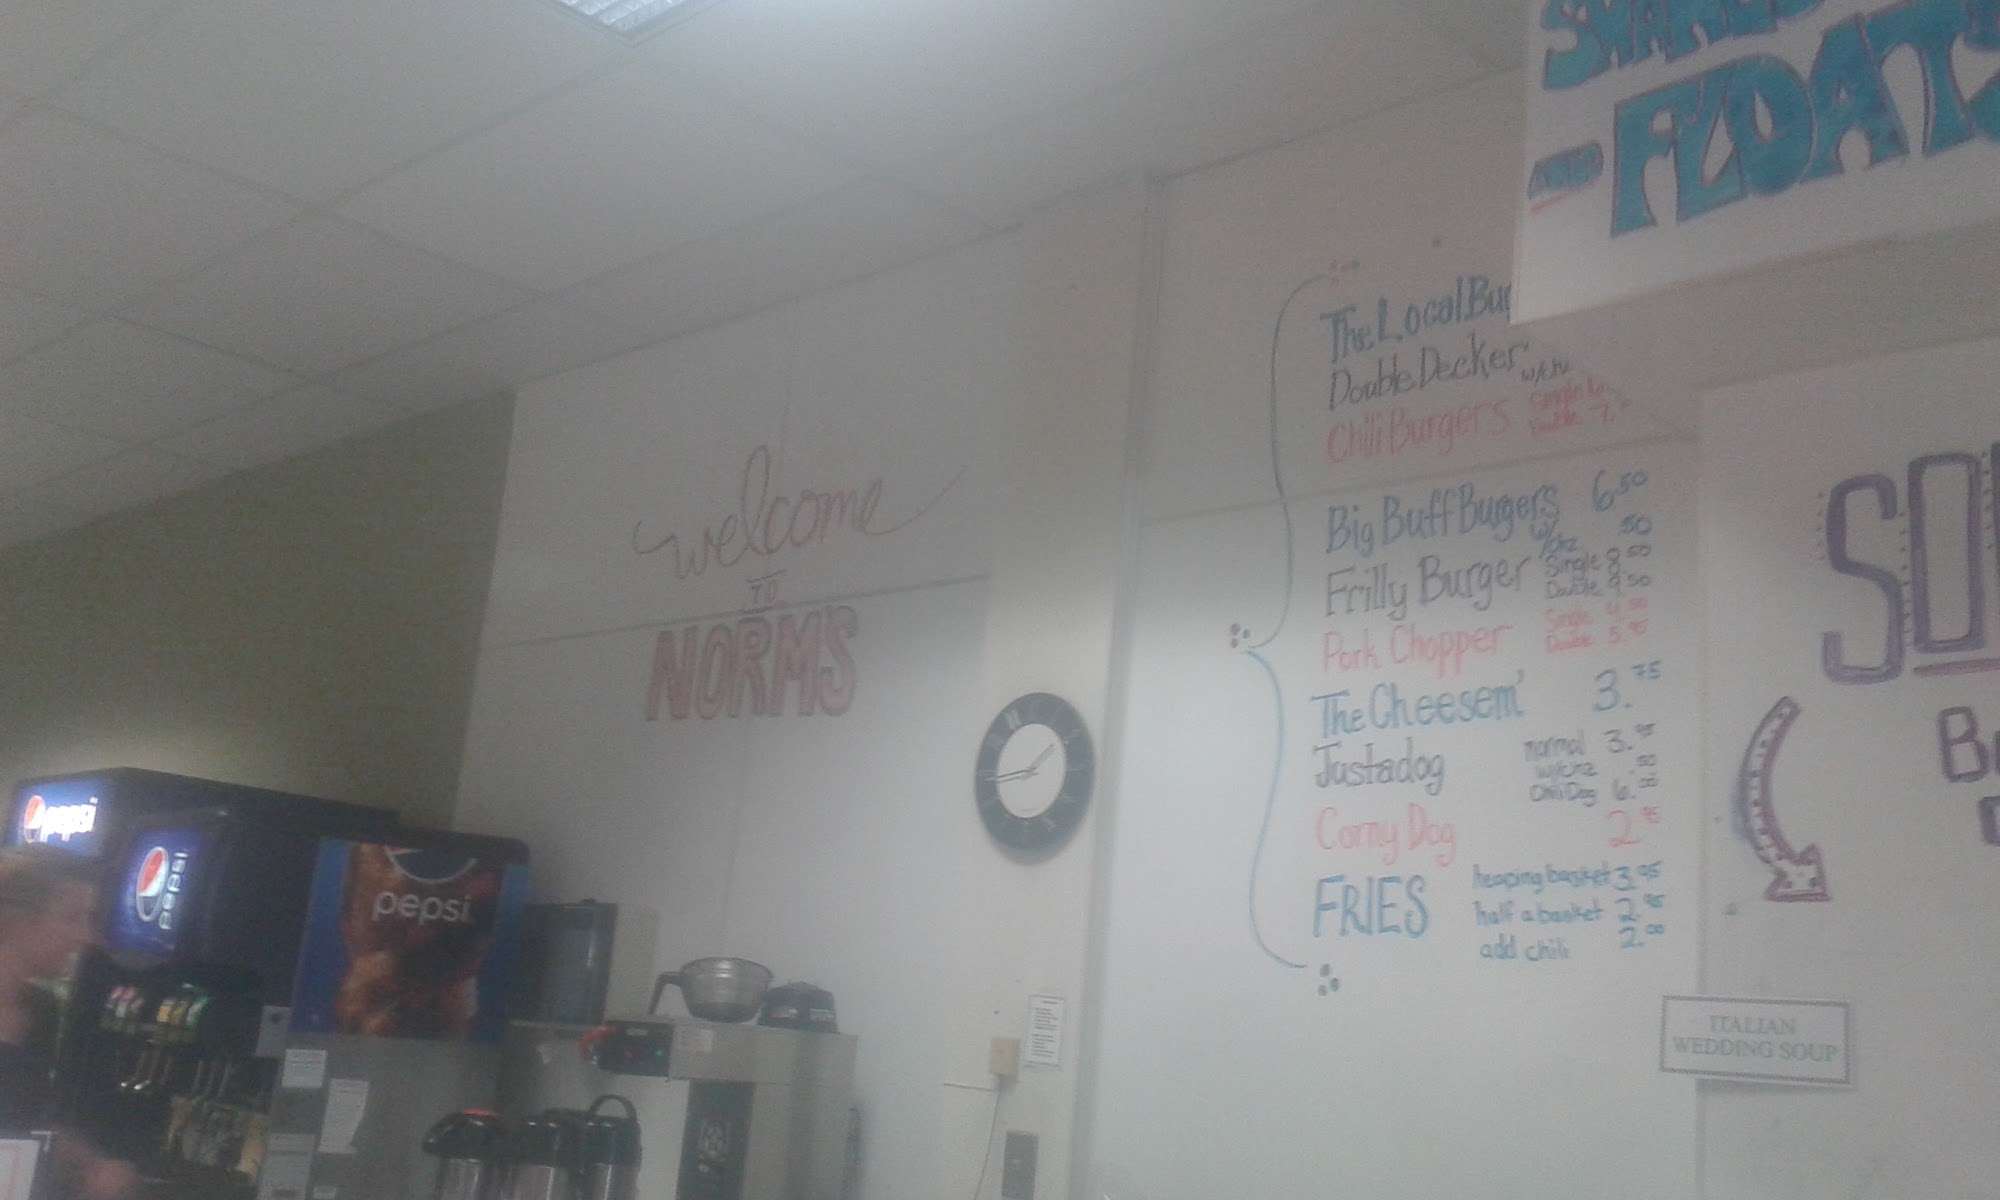 SHAKES
AND
FLOATS
welcome
TO
NORM'S
The Local Bu
Double Decker w/chz
Chili Burgers Single
Double 7.
Big Buff Burgers 6.50
w/chz .50
Frilly Burger Single 8.50
Double 9.50
Pork Chopper Single 4.50
Double 5.95
The Cheesem' 3.75
Justadog normal 3.95
w/chz .50
Chili Dog 6.00
Corny Dog 2.95
FRIES heaping basket 3.95
half a basket 2.95
add chili 2.00
SO
ITALIAN
WEDDING SOUP
pepsi
pepsi
pepsi